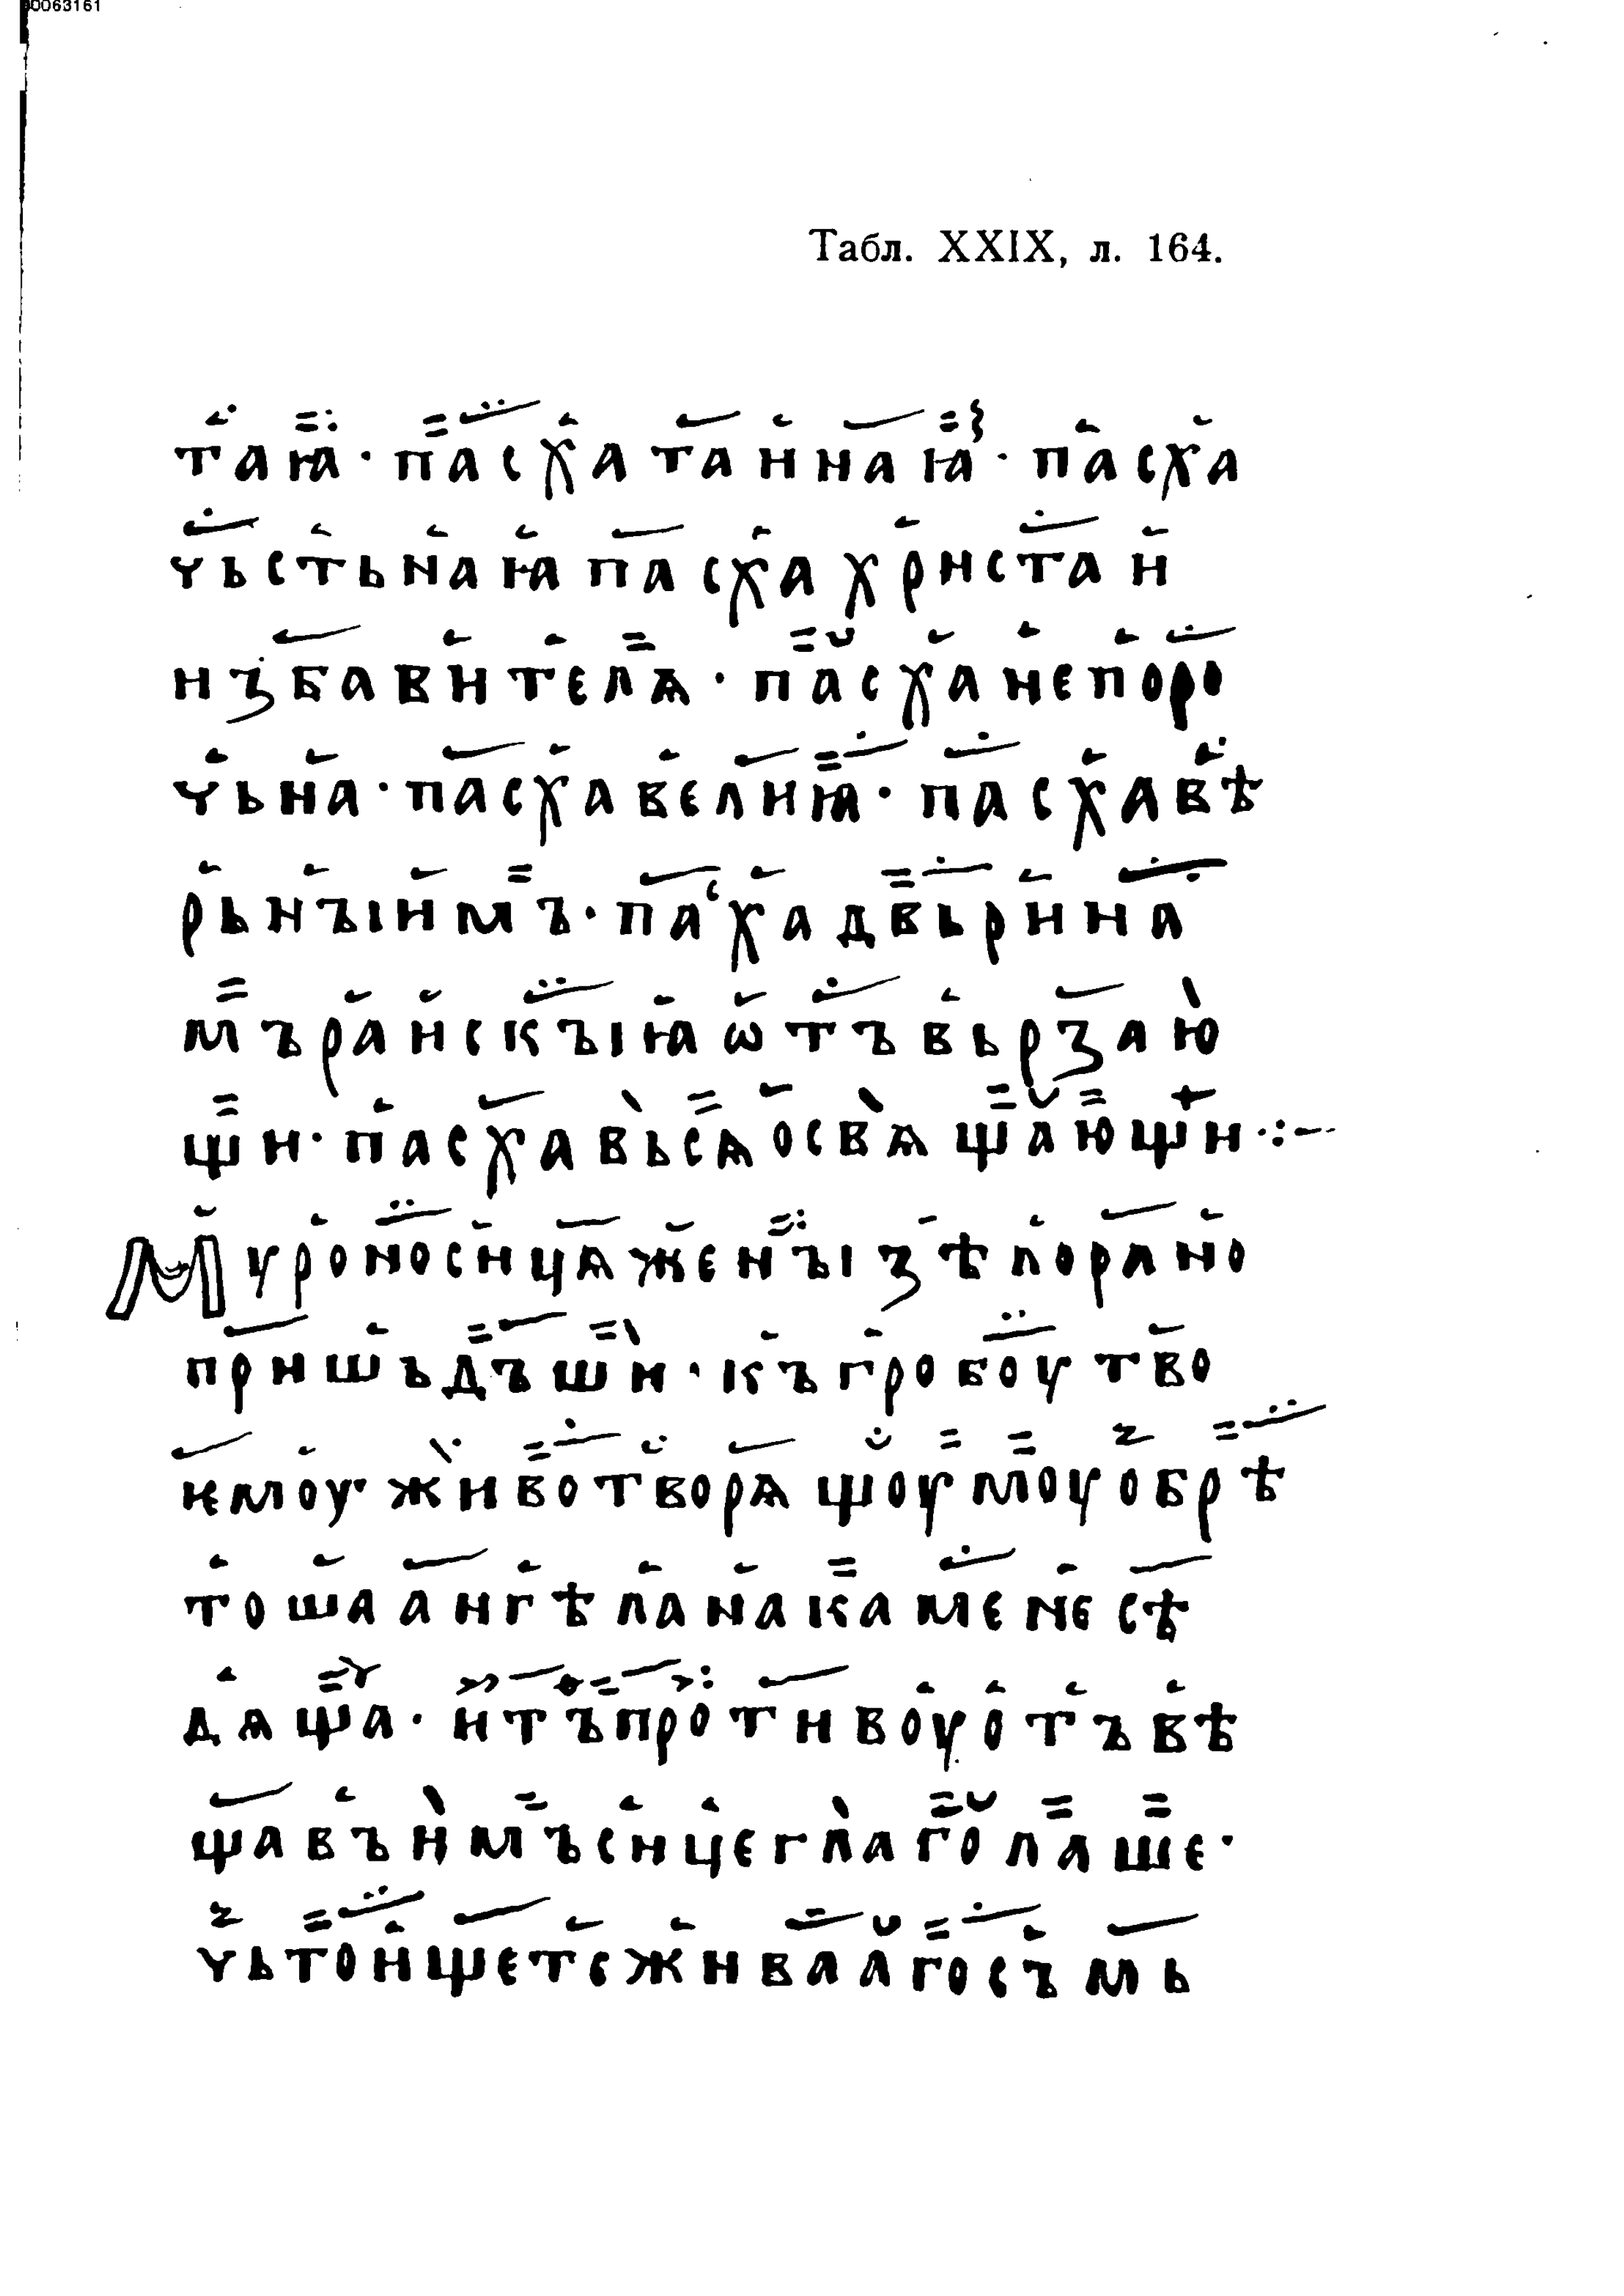 00063161
Табл. XXIX, л. 164.
таꙗ · пасха таинаꙗ · пасха
чьстьнаꙗ пасха христаи
избавителѧ · пасха непоро
чьна · пасха велиꙗ · пасха вѣ
рьнъіимъ · паⷭха двьри на
мъ раискъіꙗ ѡтъвьрзаю
щи · пасха вьсѧ освѧщающи ·:·–
Мѵроносицѧ женъі зѣло рано
пришъдъши · къ гробоу тво
ѥмоу животворѧщоумоу обрѣ
тоша ангѣла на камене сѣ
дѧща · и тъ противоу отъвѣ
щавъ имъ сице глаголаше ·
чьто ищете живааго съ мь